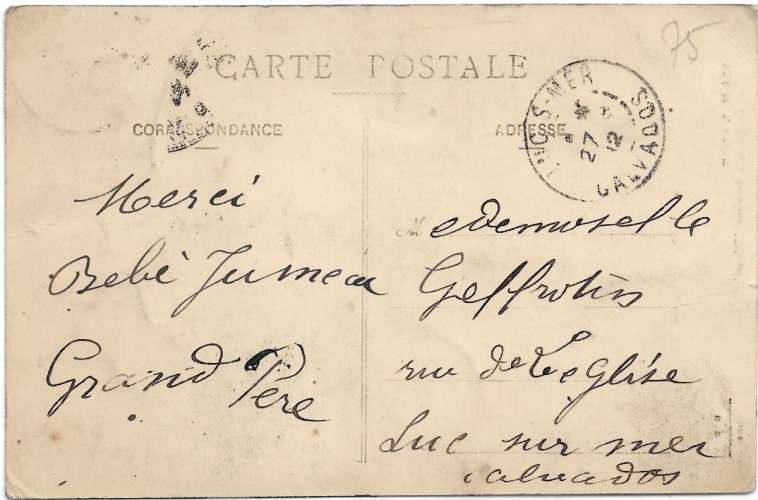 75
CARTE POSTALE
CORRESPONDANCE
ADRESSE
LUC-S-MER
27
12
CALVADOS
Merci
Bebè Jumeau
Grand Père
M edemoselle
Geffrotin
rue de Leglise
Luc sur mer
calvados